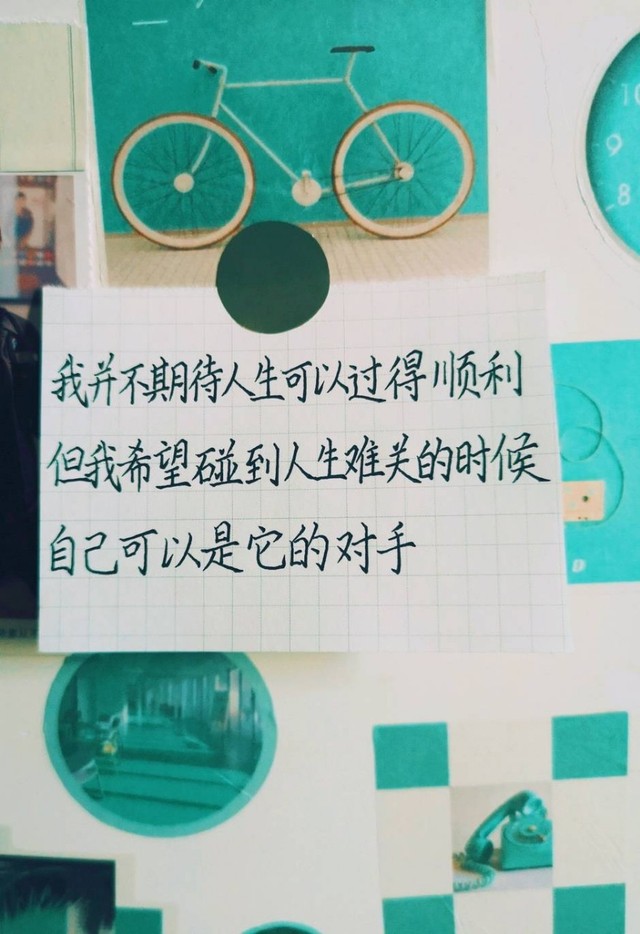 我并不期待人生可以过得顺利
但我希望碰到人生难关的时候
自己可以是它的对手
10
9
8